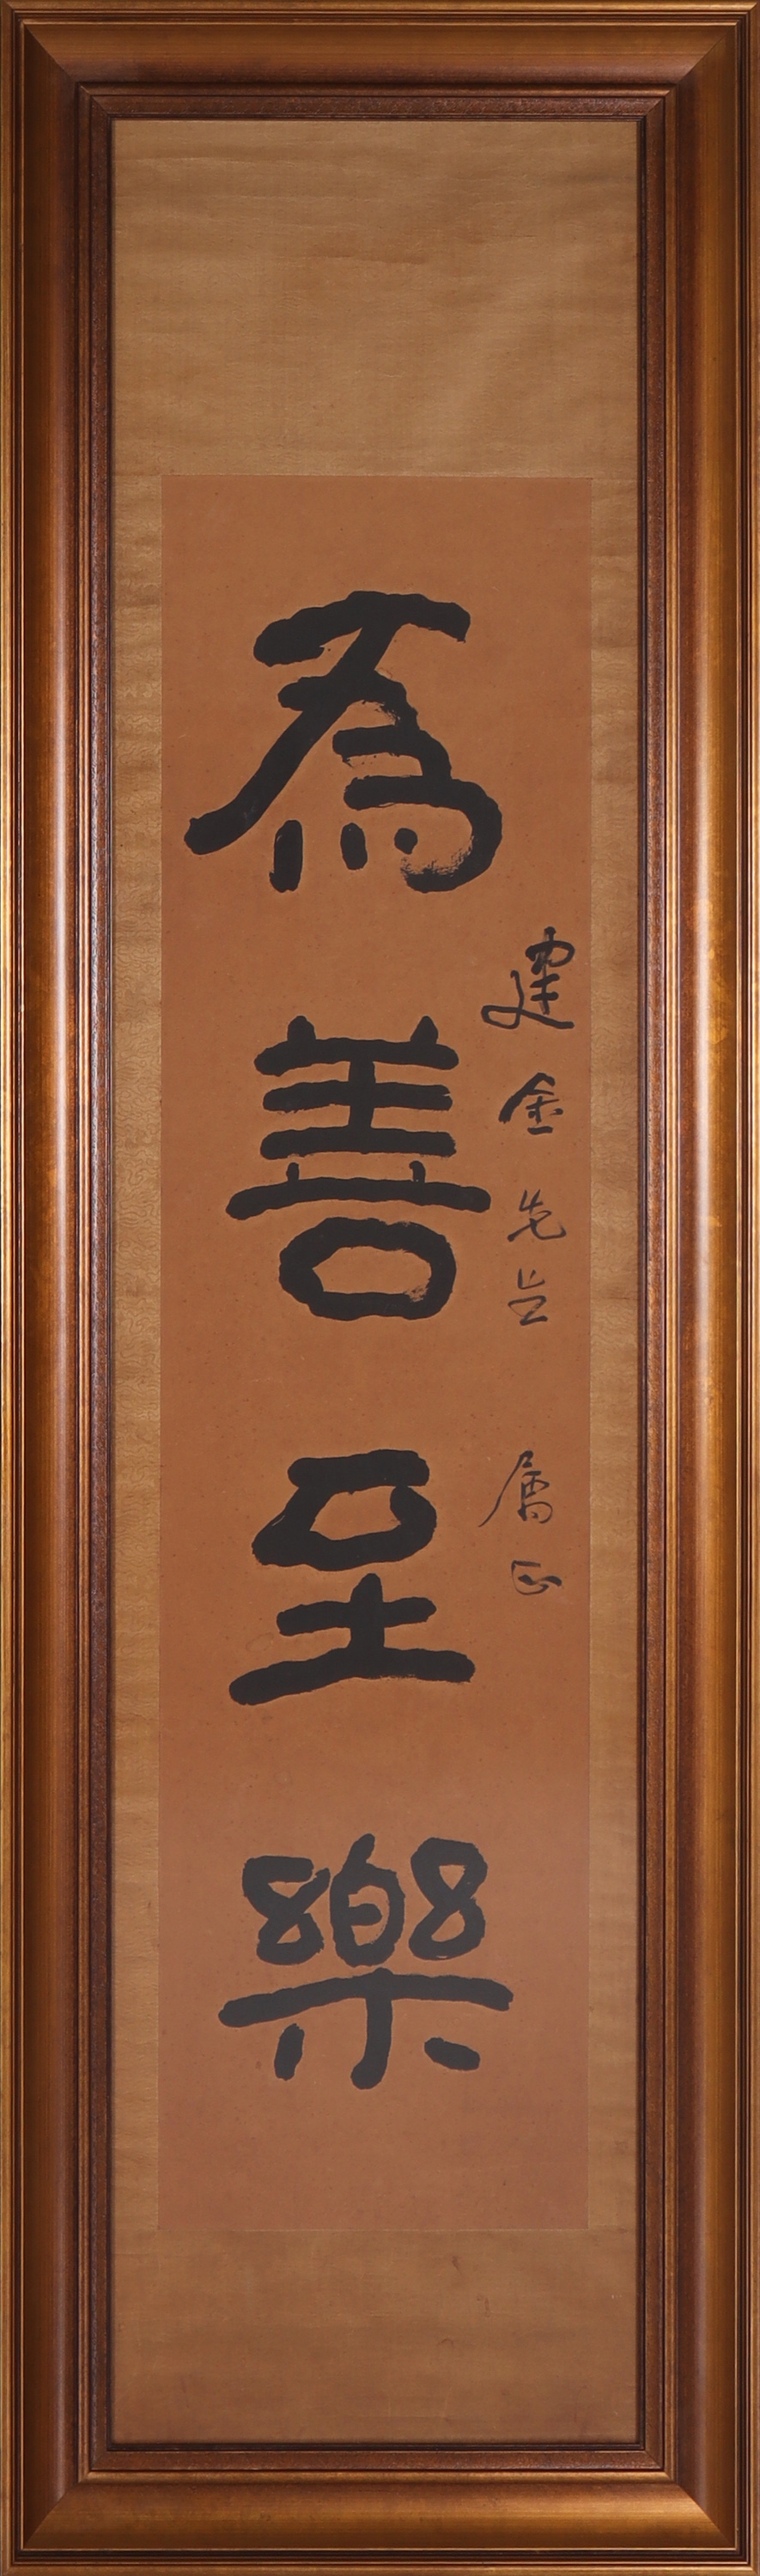 建金先生 属正
為善至樂